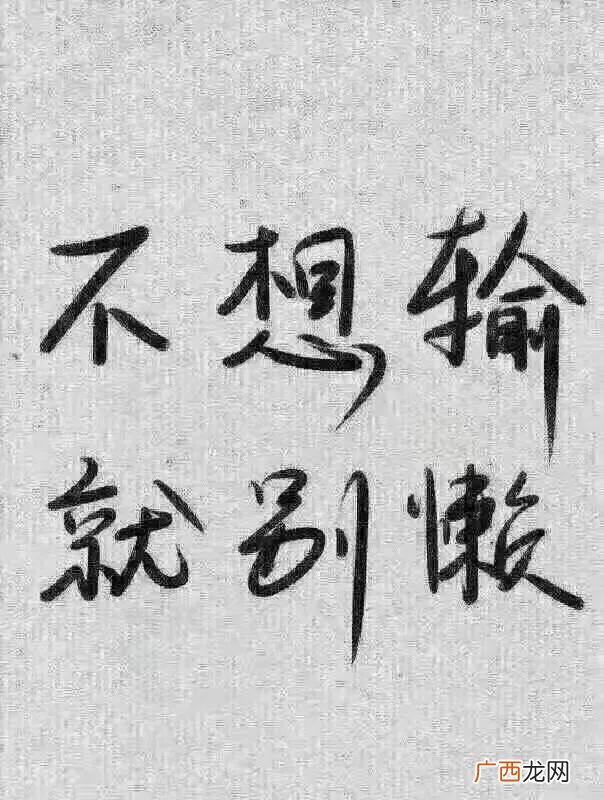 不想输
就别懒
广西龙网